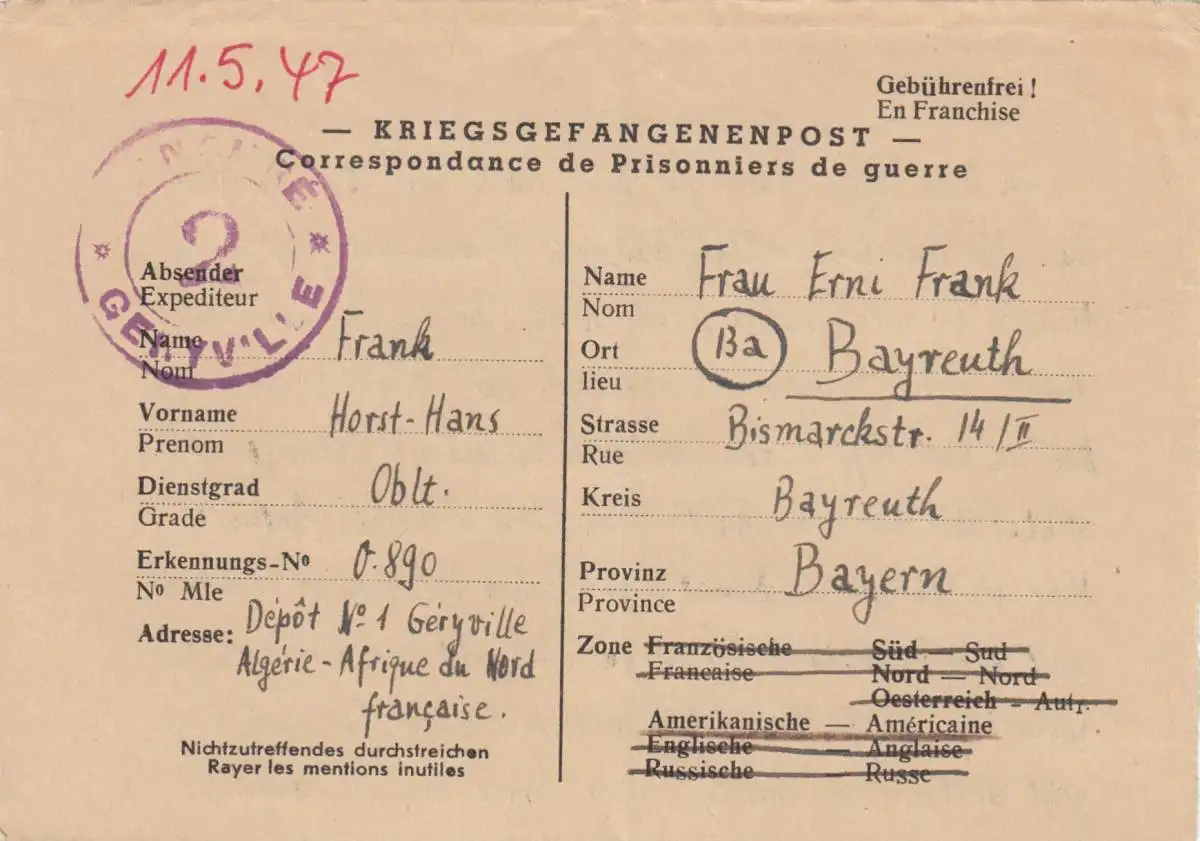 11.5.47
Gebührenfrei !
En Franchise
— KRIEGSGEFANGENENPOST —
Correspondance de Prisonniers de guerre
2
GERYVILLE
Absender
Expediteur
Name Frank
Nom
Vorname Horst-Hans
Prenom
Dienstgrad Oblt.
Grade
Erkennungs-Nº O.890
Nº Mle
Adresse: Dépôt Nº 1 Géryville
Algérie - Afrique du Nord
française.
Nichtzutreffendes durchstreichen
Rayer les mentions inutiles
Name Frau Erni Frank
Nom
Ort Ba Bayreuth
lieu
Strasse Bismarckstr. 14/II
Rue
Kreis Bayreuth
Provinz Bayern
Province
Zone Französische Süd — Sud
Francaise Nord — Nord
Oesterreich - Autr.
Amerikanische — Américaine
Englische — Anglaise
Russische — Russe